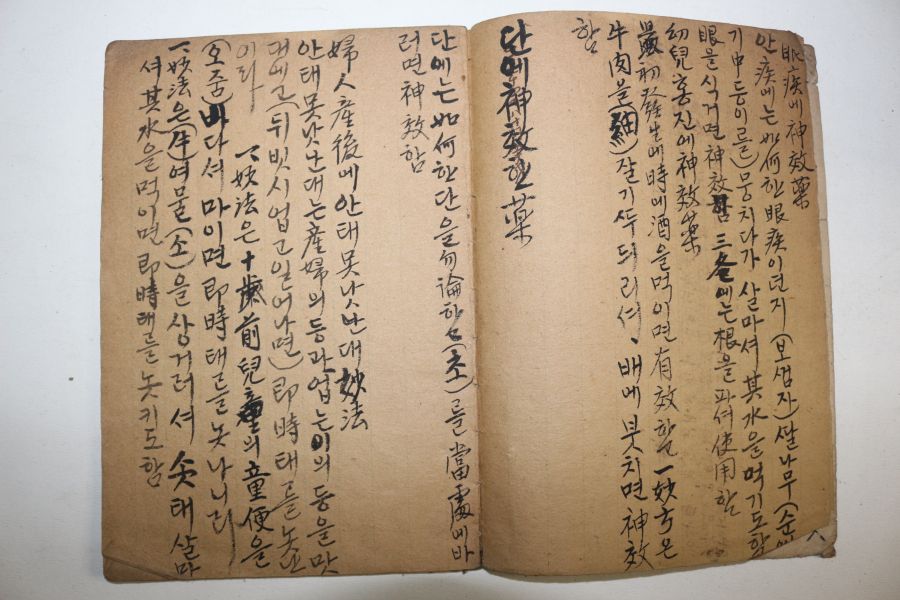 眼疾에神效藥
안疾에는如何한眼疾이던지(보삼자)쌀나무(순
기中등이를)뭉치다가살마셔其水을먹기도함
眼을식거면神效함 三冬에는根을파셔使用함
幼兒홍진에神效藥
發生時에酒을먹이면有效할 一妙方은
牛肉을(細)잘기 두 리셔、배에븟치면神效
함
단에神效한藥
단에는如何한단을勿論하고(초)를當處에바
러면神效함
婦人産後에안태못낫난대妙法
안태못낫난대는産婦의등과업는이의등을맛
대에고(뒤빗시업고일어나면)即時태를놋난
이라 一妙法은十歲前兒童의童便을
(오줌)바다셔마이면即時태를놋나니라
一妙法은(牛)여물(소)을상거러셔솟태살마
셔其水을먹이면即時태를놋키도함